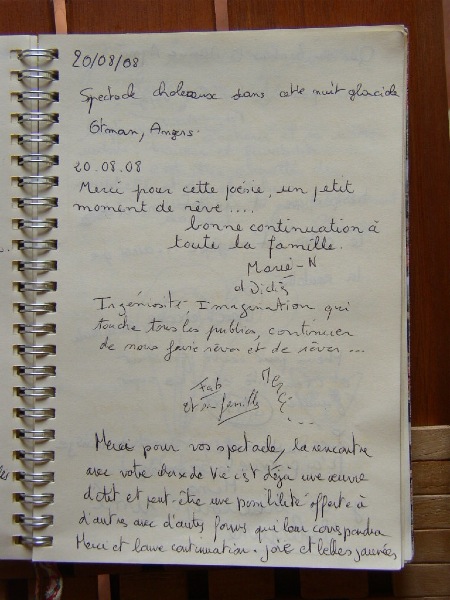 20/08/08
Spectacle chaleureux dans cette nuit glaciale
Otman, Angers.
20.08.08
Merci pour cette poésie, un petit
moment de rêve ....
bonne continuation à
toute la famille.
Marie-N
et Didier
Ingéniosité Imagination qui
touche tous les publics, continuer
de nous faire rêver et de rêver ...
Fab
et sa famille
Merci ...
Merci pour vos spectacle, la rencontre
avec votre choix de vie est déjà une œuvre
d'art et peut-être une possibilité offerte à
d'autres avec d'autres formes qui leur correspondra
Merci et bonne continuation. joie et belles journées